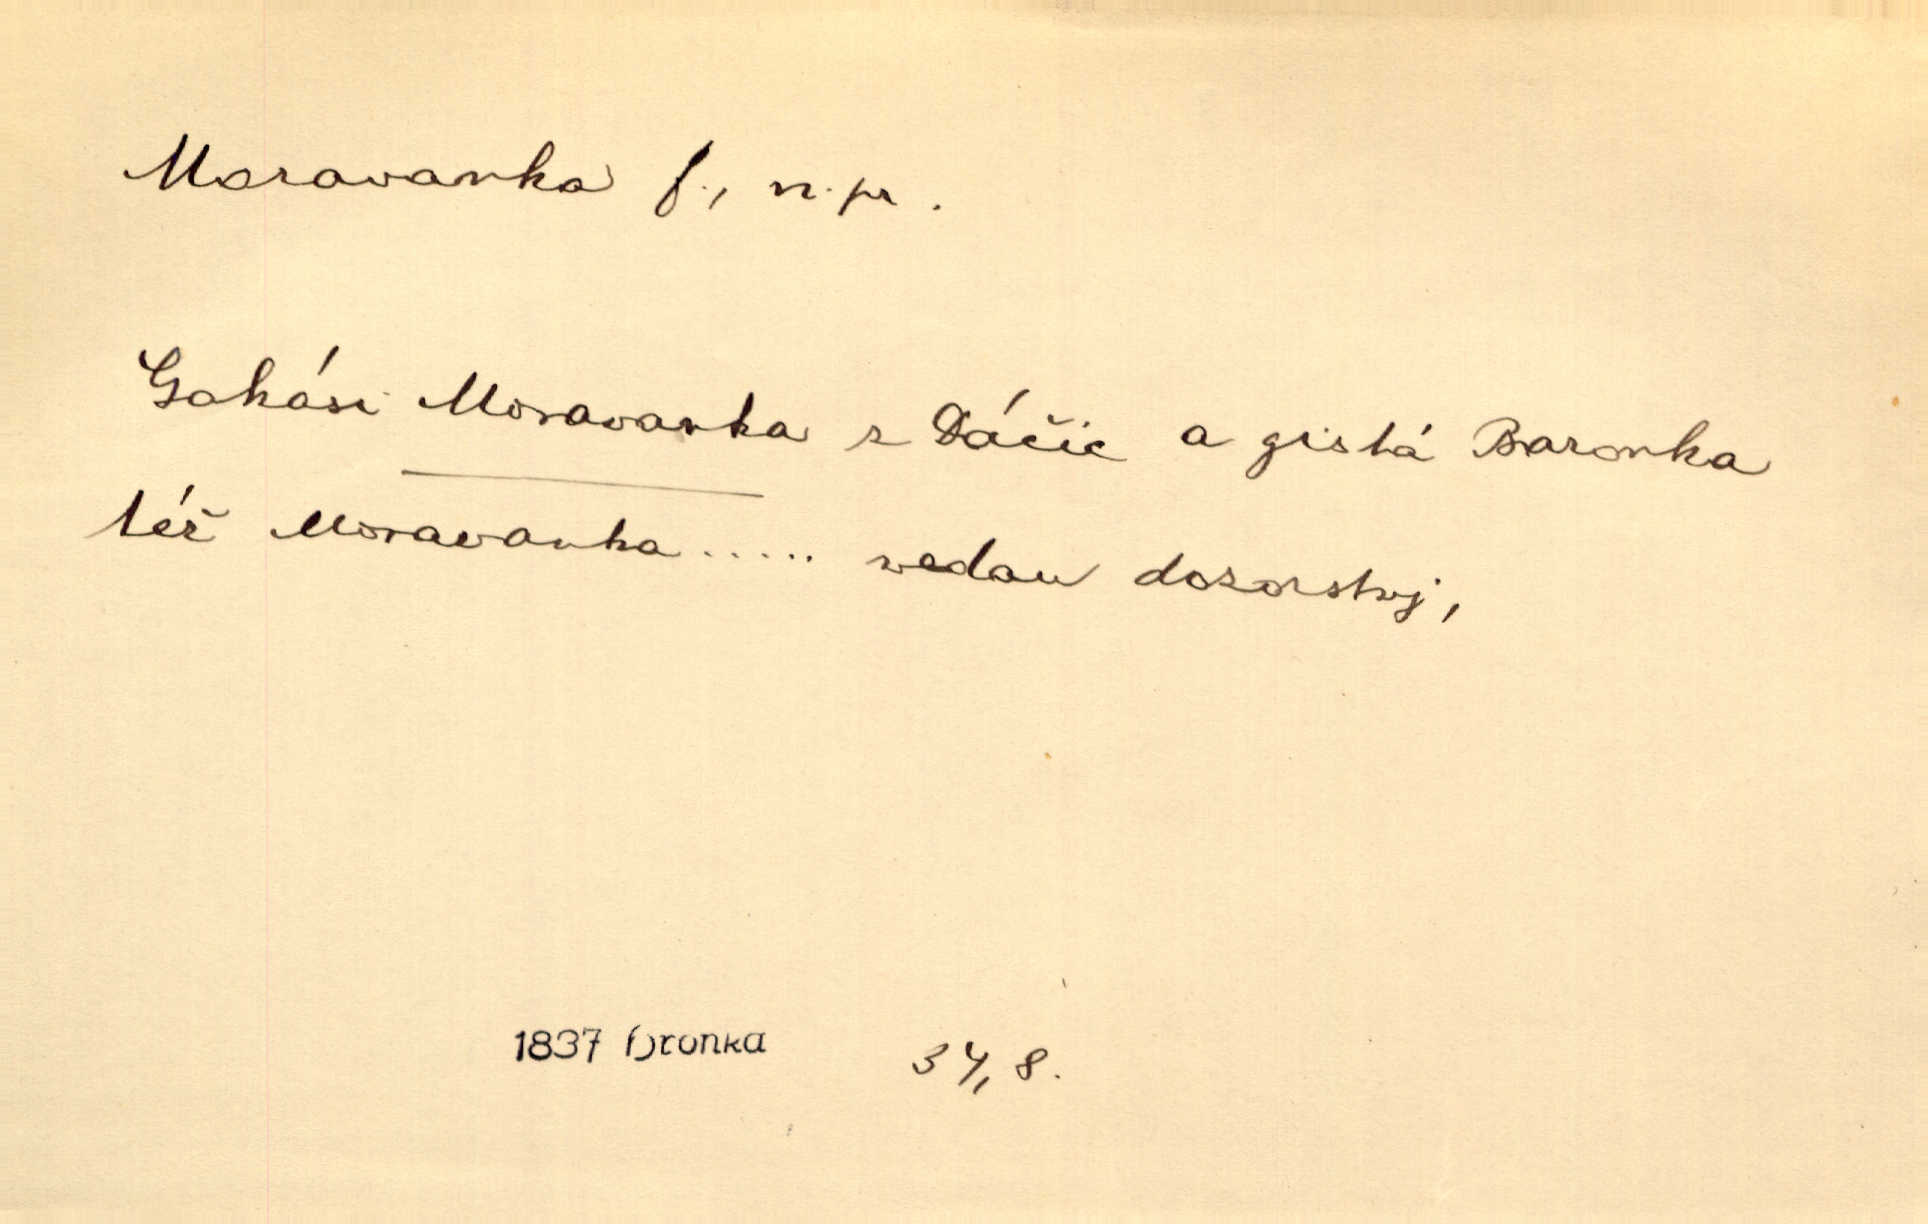 Moravanka f., n. pr.
Gakási Moravanka z Dáčic a gistá Baronka
též Moravanka ..... vedau dozorstvj,
1837 Hronka 34, 8.